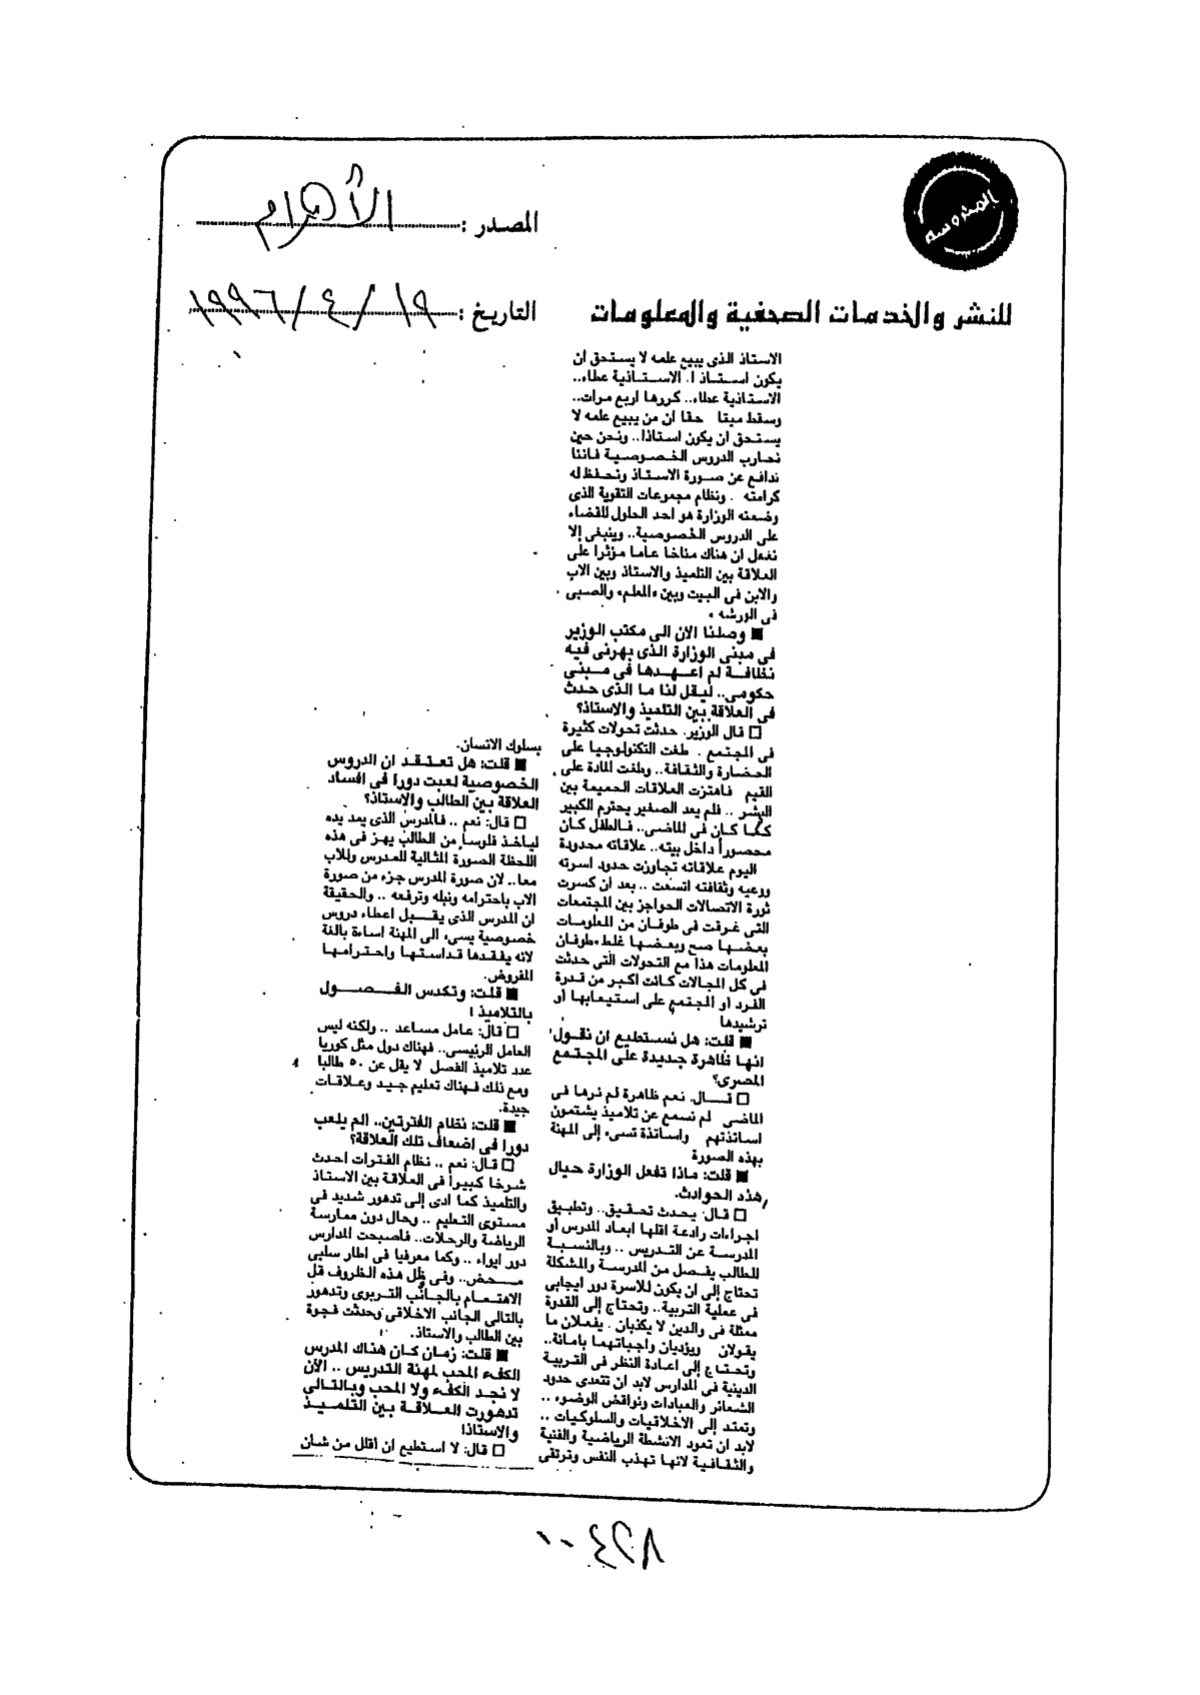 المحروسة
المصدر : الأهرام
للنشر والخدمات الصحفية والمعلومات
التاريخ : ١٩ / ٤ / ١٩٩٦
الاستاذ الذى يبيع علمه لا يستحق ان
يكون استاذا. الاستاذية عطاء..
الاستاذية عطاء.. كررها اربع مرات..
وسقط ميتا حقا ان من يبيع علمه لا
يستحق ان يكون استاذا.. ونحن حين
نحارب الدروس الخصوصية فاننا
ندافع عن صورة الاستاذ ونحفظ له
كرامته . ونظام مجموعات التقوية الذى
وضعته الوزارة هو احد الحلول للقضاء
على الدروس الخصوصية.. وينبغى إلا
نغفل ان هناك مناخا عاما مؤثرا على
العلاقة بين التلميذ والاستاذ وبين الاب
والابن فى البيت وبين «المعلم» والصبى
فى الورشه .
■ وصلنا الان الى مكتب الوزير
فى مبنى الوزارة الذى بهرنى فيه
نظافة لم اعهدها فى مبنى
حكومى.. ليقل لنا ما الذى حدث
فى العلاقة بين التلميذ والاستاذ؟
□ قال الوزير. حدثت تحولات كثيرة
فى المجتمع . طغت التكنولوجيا على
الحضارة والثقافة.. وطغت المادة على
القيم فاهتزت العلاقات الحميمة بين
البشر .. فلم يعد الصغير يحترم الكبير
كما كان فى الماضى.. فالطفل كان
محصوراً داخل بيته.. علاقاته محدودة
اليوم علاقاته تجاوزت حدود اسرته
ووعيه وثقافته اتسعت .. بعد ان كسرت
ثورة الاتصالات الحواجز بين المجتمعات
التى غرقت فى طوفان من المعلومات
بعضها صح وبعضها غلط. طوفان
المعلومات هذا مع التحولات التى حدثت
فى كل المجالات كانت اكبر من قدرة
الفرد او المجتمع على استيعابها أو
ترشيدها
■ قلت: هل نستطيع ان نقول
انها ظاهرة جديدة على المجتمع
المصرى؟
□ قال. نعم ظاهرة لم نرها فى
الماضى لم نسمع عن تلاميذ يشتمون
اساتذتهم واساتذة تسىء إلى المهنة
بهذه الصورة
■ قلت: ماذا تفعل الوزارة حيال
هذه الحوادث.
□ قال: يحدث تحقيق.. وتطبيق
اجراءات رادعة اقلها ابعاد المدرس أو
المدرسة عن التدريس .. وبالنسبة
للطالب يفصل من المدرسة والمشكلة
تحتاج إلى ان يكون للاسرة دور ايجابى
فى عملية التربية.. وتحتاج إلى القدوة
ممثلة فى والدين لا يكذبان . يفعلان ما
يقولان ويؤديان واجباتهما بامانة..
وتحتاج إلى اعادة النظر فى التربية
الدينية فى المدارس لابد ان تتعدى حدود
الشعائر والعبادات ونواقض الوضوء ..
وتمتد إلى الاخلاقيات والسلوكيات ..
لابد ان تعود الانشطة الرياضية والفنية
والثقافية لانها تهذب النفس وترتقى
بسلوك الانسان.
■ قلت: هل تعتقد ان الدروس
الخصوصية لعبت دورا فى افساد
العلاقة بين الطالب والاستاذ؟
□ قال: نعم .. فالمدرس الذى يمد يده
لياخذ فلوسا من الطالب يهز فى هذه
اللحظة الصورة المثالية للمدرس وللاب
معا.. لان صورة المدرس جزء من صورة
الاب باحترامه ونبله وترفعه .. والحقيقة
ان المدرس الذى يقبل اعطاء دروس
خصوصية يسىء الى المهنة اساءة بالغة
لانه يفقدها قداستها واحترامها
المفروض.
■ قلت: وتكدس الفصول
بالتلاميذ !
□ قال: عامل مساعد .. ولكنه ليس
العامل الرئيسى.. فهناك دول مثل كوريا
عدد تلاميذ الفصل لا يقل عن ٥٠ طالبا
ومع ذلك فهناك تعليم جيد وعلاقات
جيدة.
■ قلت: نظام الفترتين.. الم يلعب
دورا فى اضعاف تلك العلاقة؟
□ قال: نعم .. نظام الفترات احدث
شرخا كبيرا فى العلاقة بين الاستاذ
والتلميذ كما ادى إلى تدهور شديد فى
مستوى التعليم .. وحال دون ممارسة
الرياضة والرحلات.. فاصبحت المدارس
دور ايواء .. وكما معرفيا فى اطار سلبى
محض.. وفى ظل هذه الظروف قل
الاهتمام بالجانب التربوى وتدهور
بالتالى الجانب الاخلاقى وحدثت فجوة
بين الطالب والاستاذ.
■ قلت: زمان كان هناك المدرس
الكفء المحب لمهنة التدريس .. الآن
لا نجد الكفء ولا المحب وبالتالى
تدهورت العلاقة بين التلميذ
والاستاذ!
□ قال: لا استطيع ان أقلل من شأن